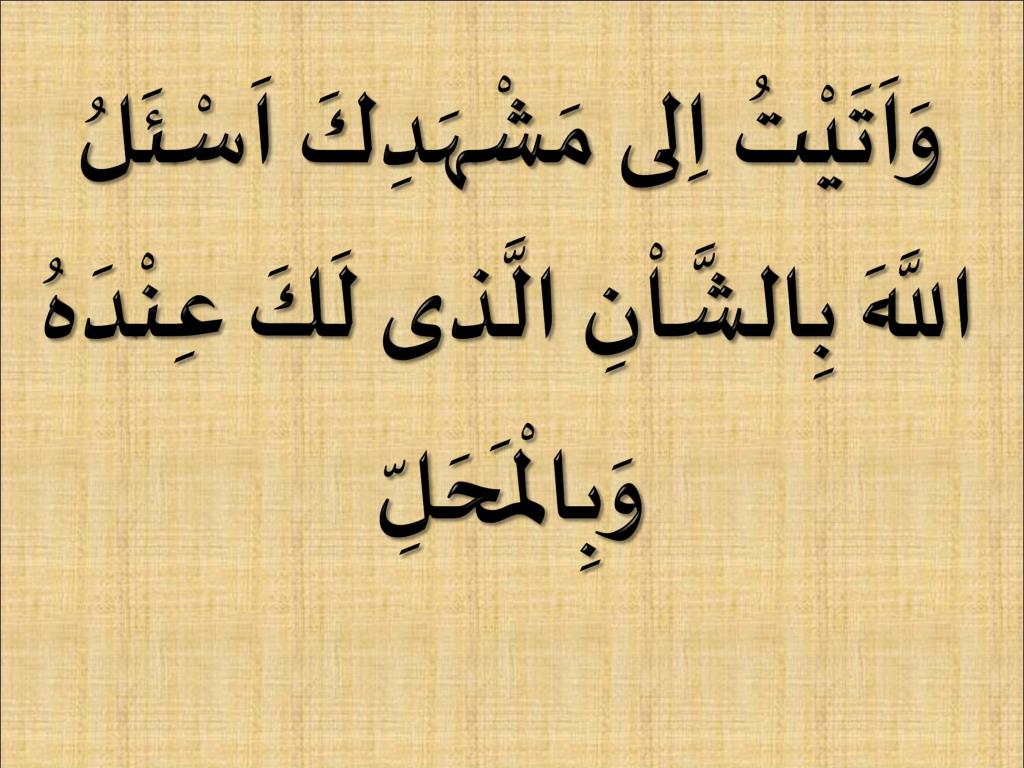 وَاَتَيْتُ اِلى مَشْهَدِكَ اَسْئَلُ
اللَّهَ بِالشَّاْنِ الَّذى لَكَ عِنْدَهُ
وَبِالْمَحَلِّ